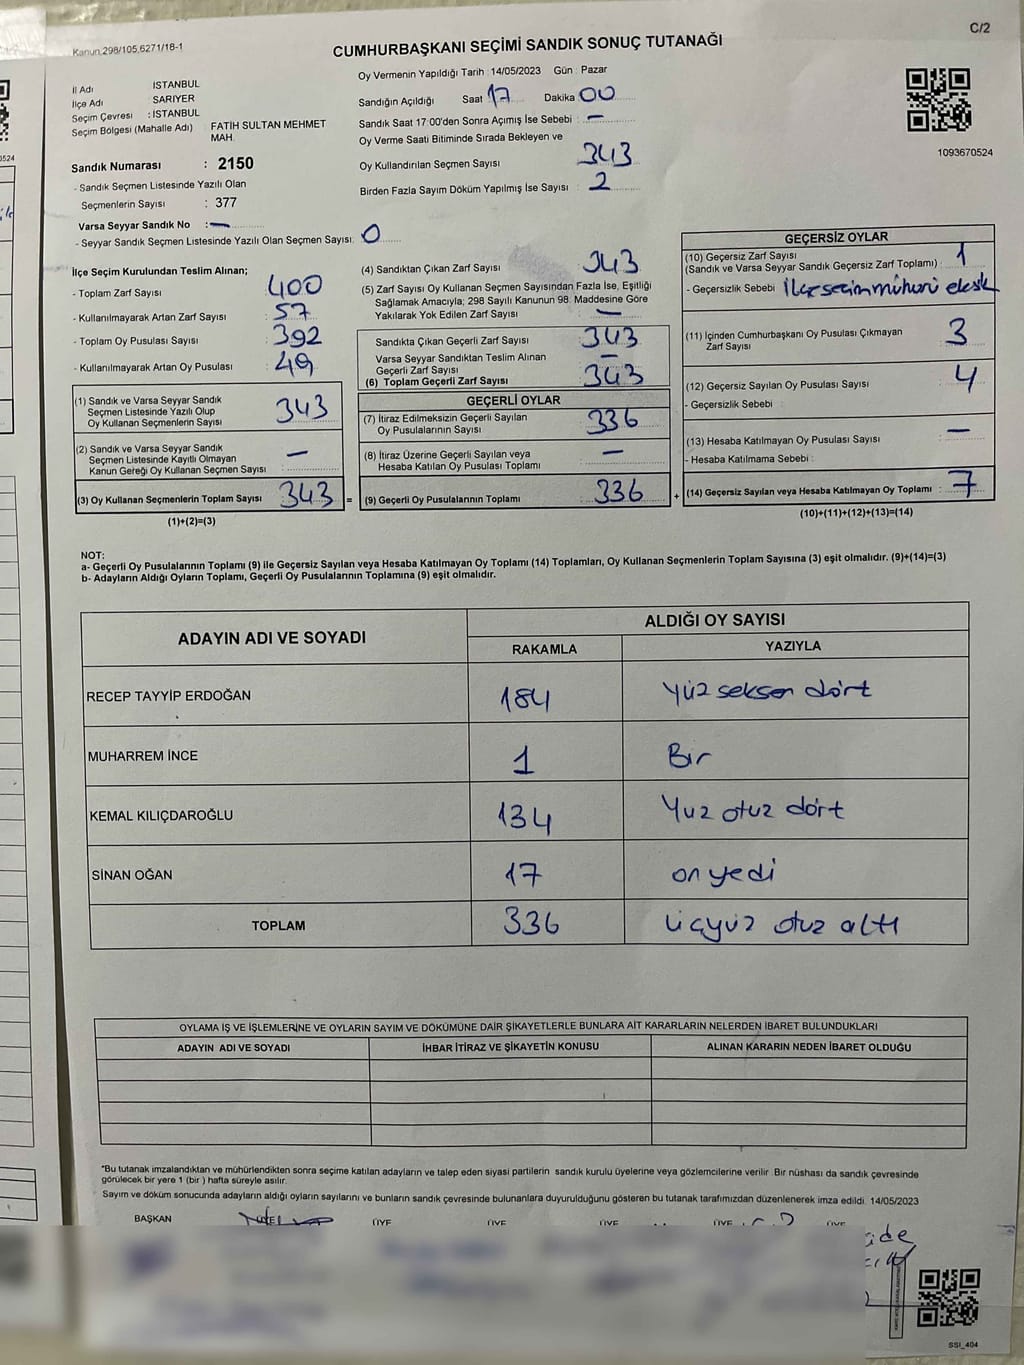 C/2
Kanun 298/105,6271/18-1
CUMHURBAŞKANI SEÇİMİ SANDIK SONUÇ TUTANAĞI
İl Adı İSTANBUL
İlçe Adı SARIYER
Seçim Çevresi : İSTANBUL
Seçim Bölgesi (Mahalle Adı) FATİH SULTAN MEHMET MAH.
Sandık Numarası : 2150
- Sandık Seçmen Listesinde Yazılı Olan
Seçmenlerin Sayısı : 377
Varsa Seyyar Sandık No : —
- Seyyar Sandık Seçmen Listesinde Yazılı Olan Seçmen Sayısı: 0
Oy Vermenin Yapıldığı Tarih : 14/05/2023 Gün : Pazar
Sandığın Açıldığı Saat 17 Dakika 00
Sandık Saat 17:00'den Sonra Açımış İse Sebebi : —
Oy Verme Saati Bitiminde Sırada Bekleyen ve
Oy Kullandırılan Seçmen Sayısı 343
Birden Fazla Sayım Döküm Yapılmış İse Sayısı : 2
1093670524
İlçe Seçim Kurulundan Teslim Alınan;
- Toplam Zarf Sayısı : 400
- Kullanılmayarak Artan Zarf Sayısı : 57
- Toplam Oy Pusulası Sayısı : 392
- Kullanılmayarak Artan Oy Pusulası : 49
(1) Sandık ve Varsa Seyyar Sandık
Seçmen Listesinde Yazılı Olup
Oy Kullanan Seçmenlerin Sayısı : 343
(2) Sandık ve Varsa Seyyar Sandık
Seçmen Listesinde Kayıtlı Olmayan
Kanun Gereği Oy Kullanan Seçmen Sayısı : —
(3) Oy Kullanan Seçmenlerin Toplam Sayısı : 343 =
(1)+(2)=(3)
(4) Sandıktan Çıkan Zarf Sayısı 343
(5) Zarf Sayısı Oy Kullanan Seçmen Sayısından Fazla İse, Eşitliği
Sağlamak Amacıyla; 298 Sayılı Kanunun 98. Maddesine Göre
Yakılarak Yok Edilen Zarf Sayısı : —
Sandıkta Çıkan Geçerli Zarf Sayısı : 343
Varsa Seyyar Sandıktan Teslim Alınan
Geçerli Zarf Sayısı : —
(6) Toplam Geçerli Zarf Sayısı : 343
GEÇERLİ OYLAR
(7) İtiraz Edilmeksizin Geçerli Sayılan
Oy Pusulalarının Sayısı : 336
(8) İtiraz Üzerine Geçerli Sayılan veya
Hesaba Katılan Oy Pusulası Toplamı : —
(9) Geçerli Oy Pusulalarının Toplamı : 336 +
GEÇERSİZ OYLAR
(10) Geçersiz Zarf Sayısı
(Sandık ve Varsa Seyyar Sandık Geçersiz Zarf Toplamı) : 1
- Geçersizlik Sebebi : İlçe seçim mühürü eksik
(11) İçinden Cumhurbaşkanı Oy Pusulası Çıkmayan
Zarf Sayısı : 3
(12) Geçersiz Sayılan Oy Pusulası Sayısı : 4
- Geçersizlik Sebebi :
(13) Hesaba Katılmayan Oy Pusulası Sayısı : —
- Hesaba Katılmama Sebebi :
(14) Geçersiz Sayılan veya Hesaba Katılmayan Oy Toplamı : 7
(10)+(11)+(12)+(13)=(14)
NOT:
a- Geçerli Oy Pusulalarının Toplamı (9) ile Geçersiz Sayılan veya Hesaba Katılmayan Oy Toplamı (14) Toplamları, Oy Kullanan Seçmenlerin Toplam Sayısına (3) eşit olmalıdır. (9)+(14)=(3)
b- Adayların Aldığı Oyların Toplamı, Geçerli Oy Pusulalarının Toplamına (9) eşit olmalıdır.
ADAYIN ADI VE SOYADI ALDIĞI OY SAYISI
RAKAMLA YAZIYLA
RECEP TAYYİP ERDOĞAN 184 yüz seksen dört
MUHARREM İNCE 1 Bir
KEMAL KILIÇDAROĞLU 134 Yüz otuz dört
SİNAN OĞAN 17 on yedi
TOPLAM 336 üçyüz otuz altı
OYLAMA İŞ VE İŞLEMLERİNE VE OYLARIN SAYIM VE DÖKÜMÜNE DAİR ŞİKAYETLERLE BUNLARA AİT KARARLARIN NELERDEN İBARET BULUNDUKLARI
ADAYIN ADI VE SOYADI İHBAR İTİRAZ VE ŞİKAYETİN KONUSU ALINAN KARARIN NEDEN İBARET OLDUĞU
*Bu tutanak imzalandıktan ve mühürlendikten sonra seçime katılan adayların ve talep eden siyasi partilerin sandık kurulu üyelerine veya gözlemcilerine verilir. Bir nüshası da sandık çevresinde
görülecek bir yere 1 (bir ) hafta süreyle asılır.
Sayım ve döküm sonucunda adayların aldığı oyların sayılarını ve bunların sandık çevresinde bulunanlara duyurulduğunu gösteren bu tutanak tarafımızdan düzenlenerek imza edildi. 14/05/2023
BAŞKAN ÜYE ÜYE ÜYE ÜYE ÜYE
SSI_404